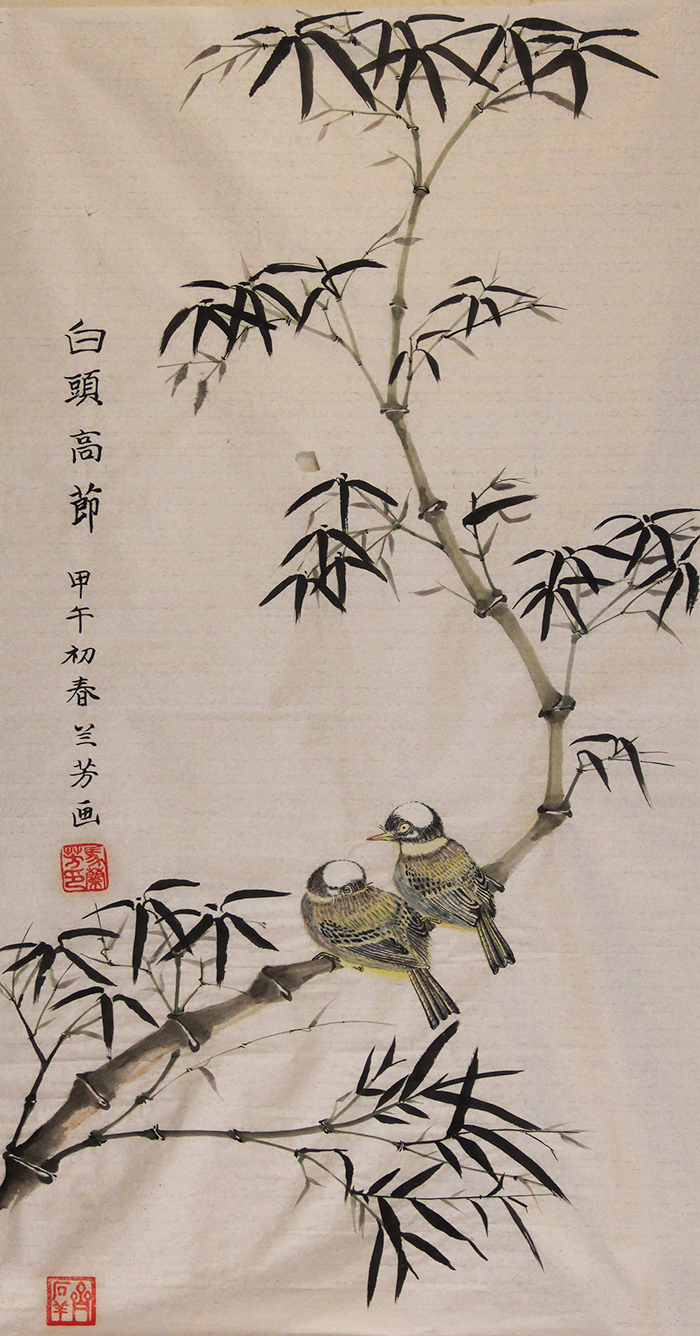 白頭高節 甲午初春兰芳画